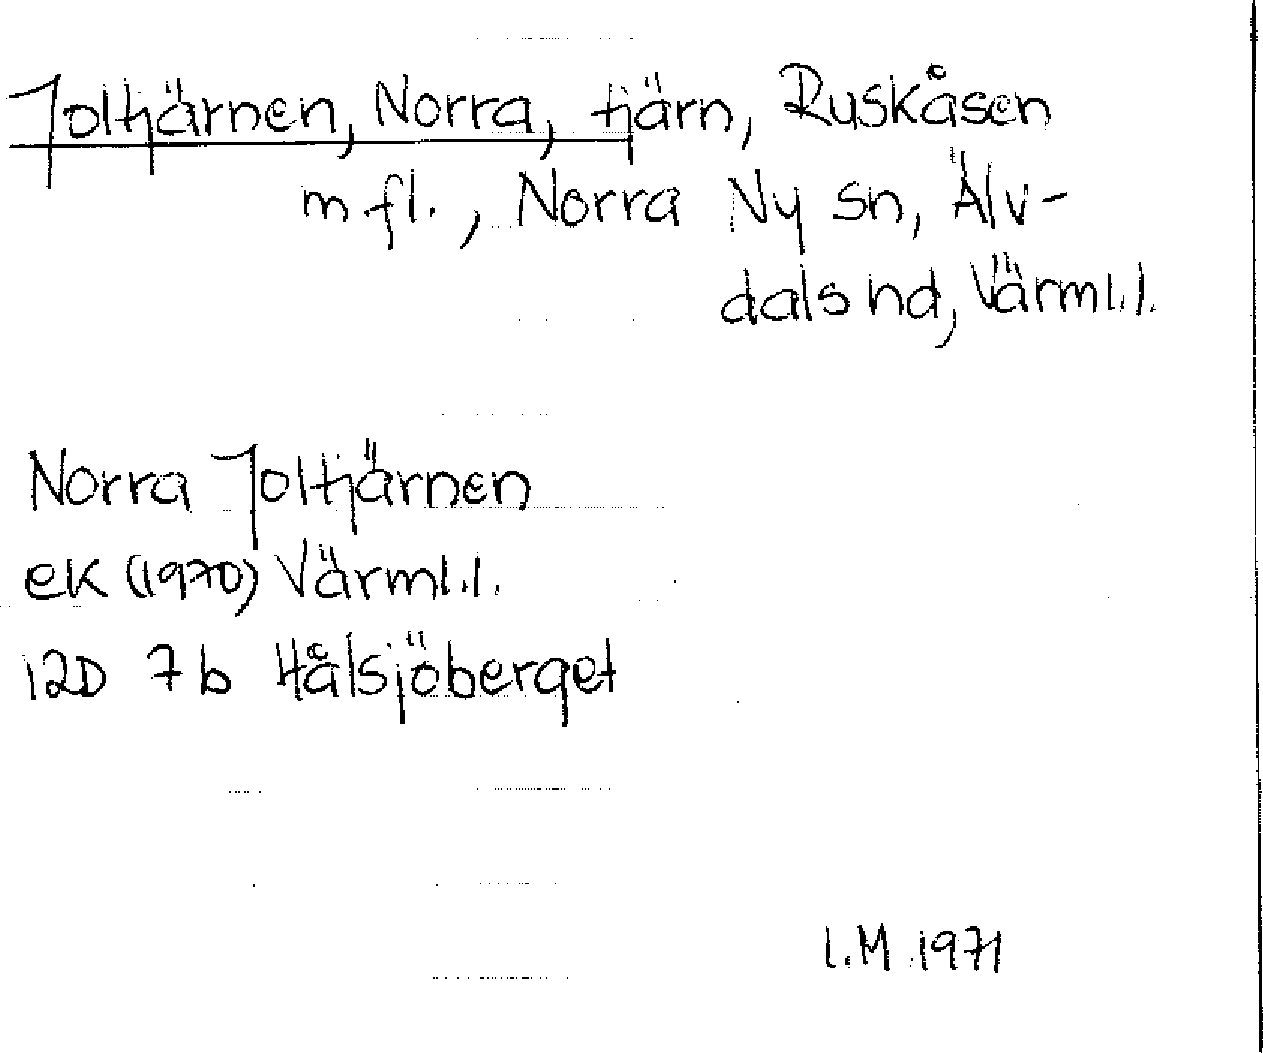 Joltjärnen, Norra, tjärn, Ruskåsen
m fl., Norra Ny sn, Älv-
dals hd, Värml.l.
Norra Joltjärnen
ek (1970) Värml.l.
12D 7b Hålsjöberget
I.M. 1971